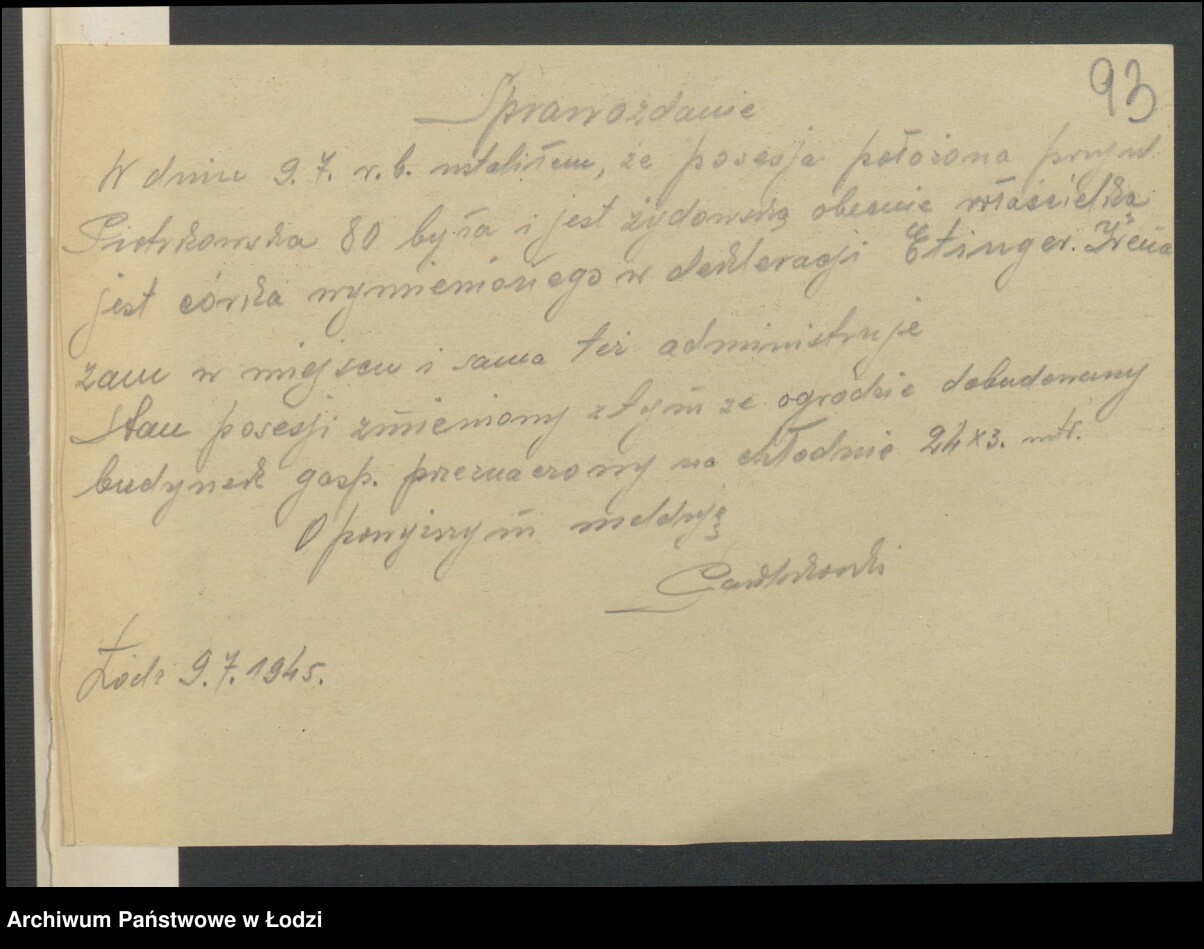 93
Sprawozdanie
W dniu 9.7. r.b. ustaliłem, że posesja położona przy ul.
Piotrkowska 80 była i jest żydowską obecnie właścicielka
jest córka wymienionego w dekleracji Etinger. Irena
zam w miejscu i sama też administruje
Stan posesji zmieniony z tym ze ogrodzie dobudowany
budynek gosp. przeznaczony na chłodnie 24x3. mtr.
O powyższym melduję
Łódź 9.7.1945.
Archiwum Państwowe w Łodzi